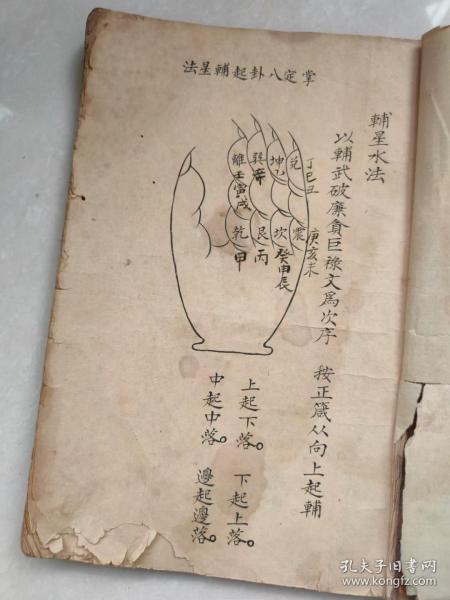 掌定八卦起輔星法
輔星水法
以輔武破廉貪巨祿文為次序
按正箴从向上起輔
兌 丁巳丑
震 庚亥未
坤乙
坎 癸申辰
巽辛
艮 丙
離壬寅戌
乾 甲
上起下落。
下起上落。
中起中落。
邊起邊落。
孔夫子旧书网
www.kongfz.com